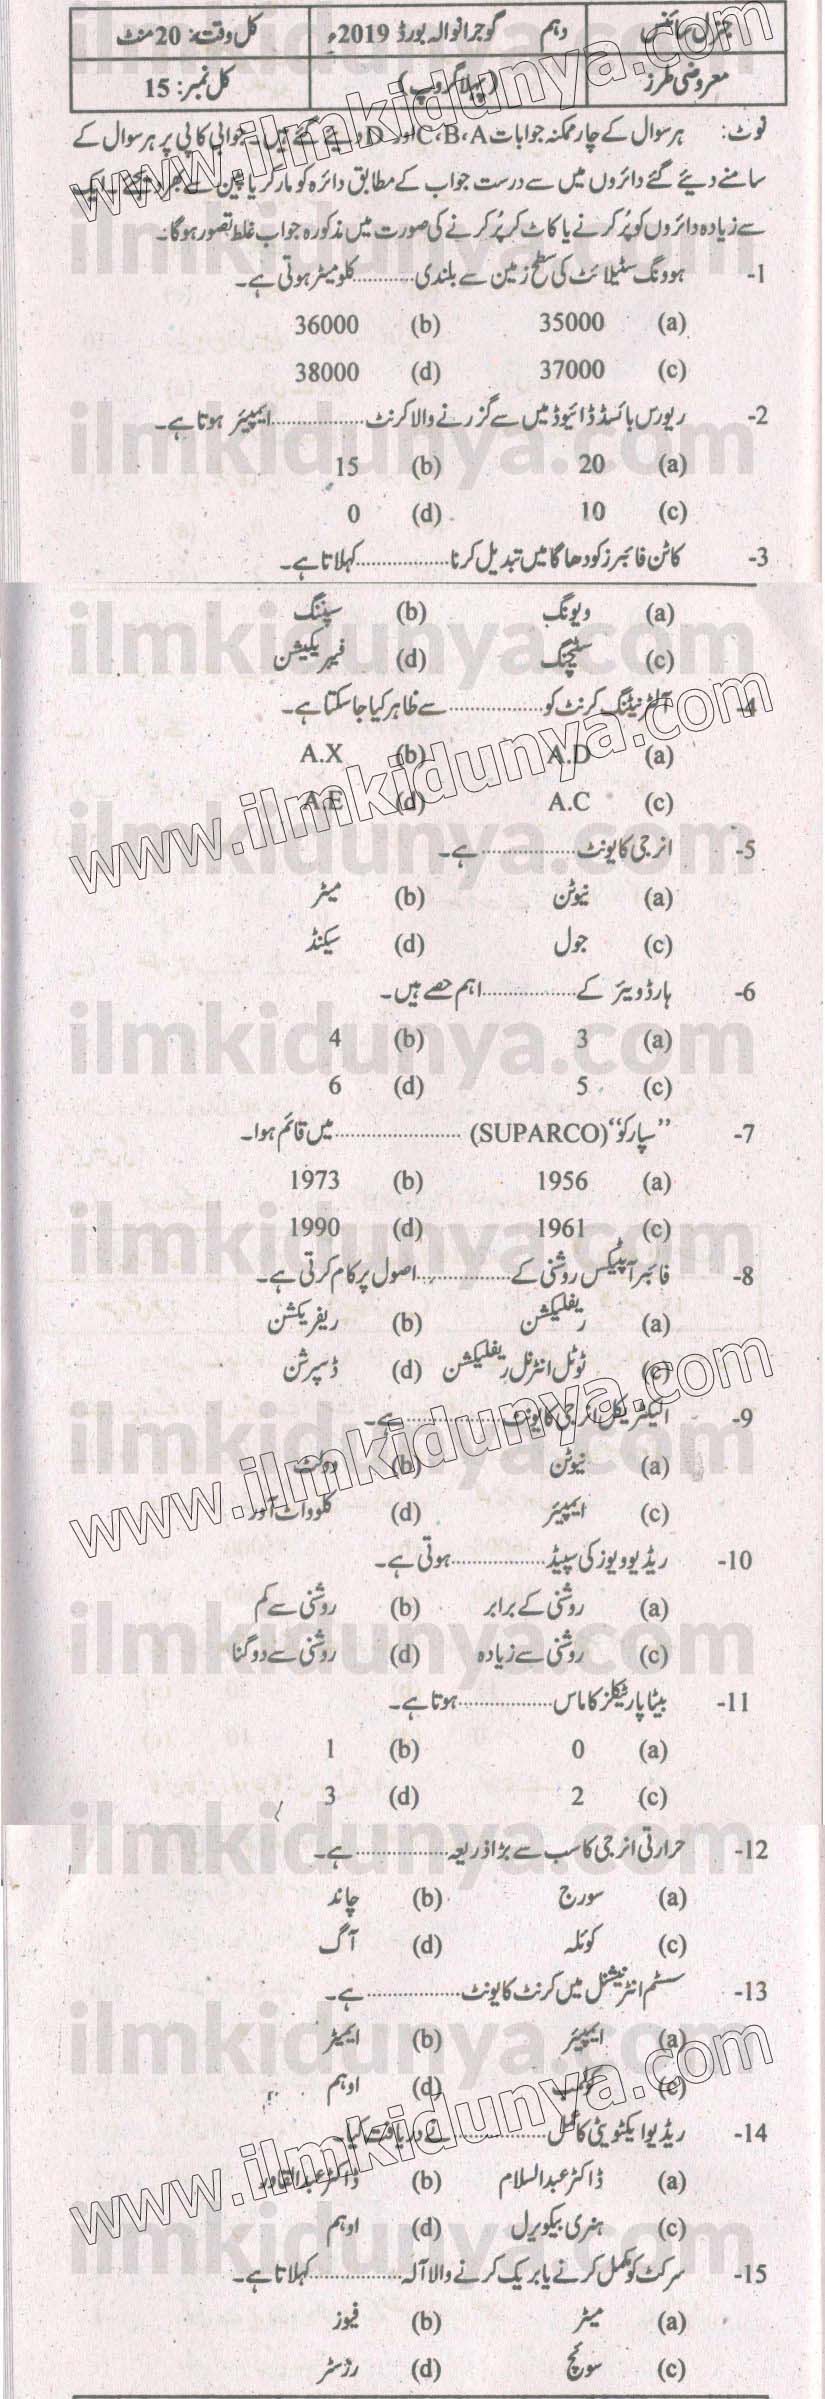 جنرل سائنس دہم گوجرانوالہ بورڈ 2019ء کل وقت: 20 منٹ
معروضی طرز (پہلا گروپ) کل نمبر: 15
نوٹ: ہر سوال کے چار ممکنہ جوابات C،B،A اور D دیئے گئے ہیں۔ جوابی کاپی پر ہر سوال کے
سامنے دیئے گئے دائروں میں سے درست جواب کے مطابق دائرہ کو مارکر یا پین سے بھر دیجئے۔ ایک
سے زیادہ دائروں کو پُر کرنے یا کاٹ کر پُر کرنے کی صورت میں مذکورہ جواب غلط تصور ہوگا۔
-1 ہوورنگ سٹیلائٹ کی سطح زمین سے بلندی ............ کلو میٹر ہوتی ہے۔
(a) 35000 (b) 36000
(c) 37000 (d) 38000
-2 ریورس بائسڈ ڈائیوڈ میں سے گزرنے والا کرنٹ .................. ایمپیئر ہوتا ہے۔
(a) 20 (b) 15
(c) 10 (d) 0
-3 کاٹن فائبرز کو دھاگا میں تبدیل کرنا .................. کہلاتا ہے۔
(a) ویونگ (b) سپننگ
(c) سٹچنگ (d) فیبریکیشن
-4 آلٹرنیٹنگ کرنٹ کو .................. سے ظاہر کیا جا سکتا ہے۔
(a) A.D (b) A.X
(c) A.C (d) A.E
-5 انرجی کا یونٹ .................. ہے۔
(a) نیوٹن (b) میٹر
(c) جول (d) سیکنڈ
-6 ہارڈ ویئر کے .................. اہم حصے ہیں۔
(a) 3 (b) 4
(c) 5 (d) 6
-7 ”سپارکو“ (SUPARCO) ........................ میں قائم ہوا۔
(a) 1956 (b) 1973
(c) 1961 (d) 1990
-8 فائبر آپٹیکس روشنی کے .................. اصول پر کام کرتی ہے۔
(a) ریفلیکشن (b) ریفریکشن
(c) ٹوٹل انٹرنل ریفلیکشن (d) ڈسپرشن
-9 الیکٹریکل انرجی کا یونٹ .................. ہے۔
(a) نیوٹن (b) وولٹ
(c) ایمپیئر (d) کلوواٹ آور
-10 ریڈیو ویوز کی سپیڈ .................. ہوتی ہے۔
(a) روشنی کے برابر (b) روشنی سے کم
(c) روشنی سے زیادہ (d) روشنی سے دوگنا
-11 بیٹا پارٹیکلز کا ماس .................. ہوتا ہے۔
(a) 0 (b) 1
(c) 2 (d) 3
-12 حرارتی انرجی کا سب سے بڑا ذریعہ .................. ہے۔
(a) سورج (b) چاند
(c) کوئلہ (d) آگ
-13 سسٹم انٹرنیشنل میں کرنٹ کا یونٹ .................. ہے۔
(a) ایمپیئر (b) ایمیٹر
(c) کولمب (d) اوہم
-14 ریڈیو ایکٹویٹی کا عمل .................. نے دریافت کیا۔
(a) ڈاکٹر عبدالسلام (b) ڈاکٹر عبدالقادر
(c) ہنری بیکویرل (d) اوہم
-15 سرکٹ کو مکمل کرنے یا بریک کرنے والا آلہ .................. کہلاتا ہے۔
(a) میٹر (b) فیوز
(c) سوئچ (d) رزسٹر
ilmkidunya.com
www.ilmkidunya.com